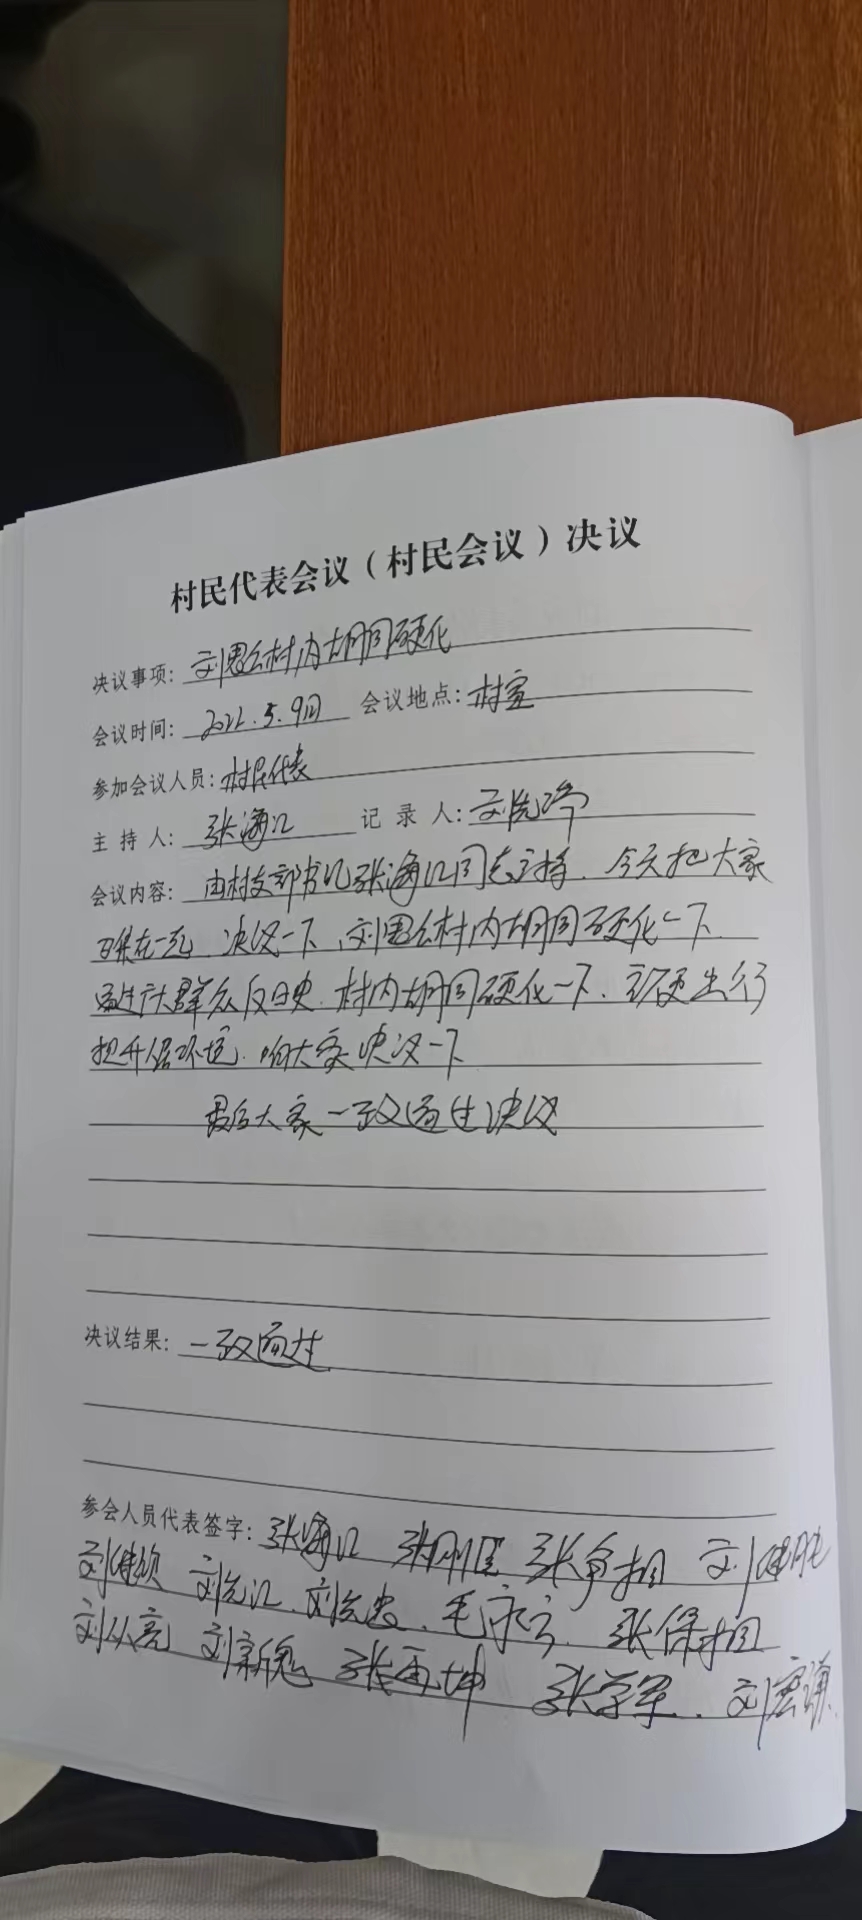 村民代表会议（村民会议）决议
决议事项：刘思公村内胡同硬化
会议时间：2022.5.9日 会议地点：村室
参加会议人员：村民代表
主持人：张海江 记录人：刘先
会议内容：由村支部书记张海江同志主持、今天把大家
召集在一起、决议一下、刘思公村内胡同硬化一下
通过广大群众反映、村内胡同硬化一下、方便出行
提升人居环境、咱大家决议一下
最后大家一致通过决议
决议结果：一致通过
参会人员代表签字：张海江 张刚 张争相 刘
刘 刘先江、刘先忠、毛、张保相
刘从亮 刘新魁 张西坤 张学军、刘宏谦